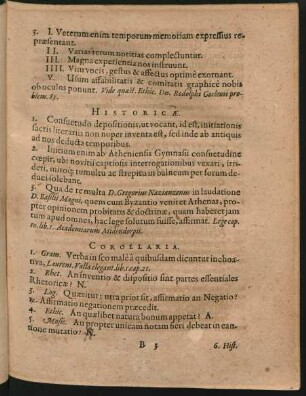 3. I. Veterum enim temporum memoriam expressius repræsentant.
II. Varias rerum notitias complectuntur.
III. Magna experientia nos instruunt.
IIII. Vitæ vocis, gestus & affectus optimè exornant.
V. Usum affabilitatis & comitatis graphicè nobis
ob oculos ponunt. Vide quæst. Ethic. Dn. Rodolphi Goclenii problem. 83.
HISTORICÆ.
1. Consuetudo depositionis, ut vocant, id est, initiationis
sactis literariis non nuper inventa est, sed inde ab antiquis
ad nos deducta temporibus.
2. Initium enim ab Atheniensis Gymnasii consuetudine
cœpit, ubi novitii captiosis interrogationibus vexari, irrideri,
mincq; tumultu ac strepitu in balneum per forum deduci solebant.
3. Qua de re multa D. Gregorius Nazianzenus in laudatione
D. Basilii Magni, quem cum Byzantio veniret Athenas, propter
opinionem probitatis & doctrinæ, quam haberet jam
tum apud omnes, hac lege solutum fuisse, affirmat. Lege cap.
10. lib. 1. Academiarum Middendorpii.
COROLLARIA.
1. Gram. Verba in sco malè à quibusdam dicuntur inchoativa,
Laurent. Valla elegant. lib. 1. cap. 21.
2. Rhet. An inventio & dispositio sint partes essentiales
Rhetoricæ? N.
3. Log. Quæritur: utra prior sit, affirmatio an Negatio?
℞. Affirmatio negationem præcedit.
4. Ethic. An quælibet natura bonum appetat? A.
5. Music. An propter unicam notam fieri debeat in cantione
mutatio? N.
B 3
6. Hist.